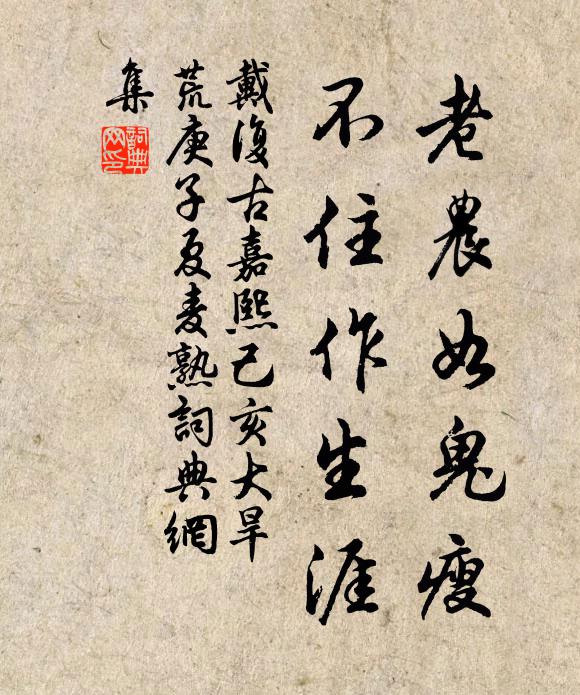 老農如鬼瘦
不住作生涯
戴復古嘉熙己亥大旱
荒庚子夏麦熟詞典網
集
詞典
网印